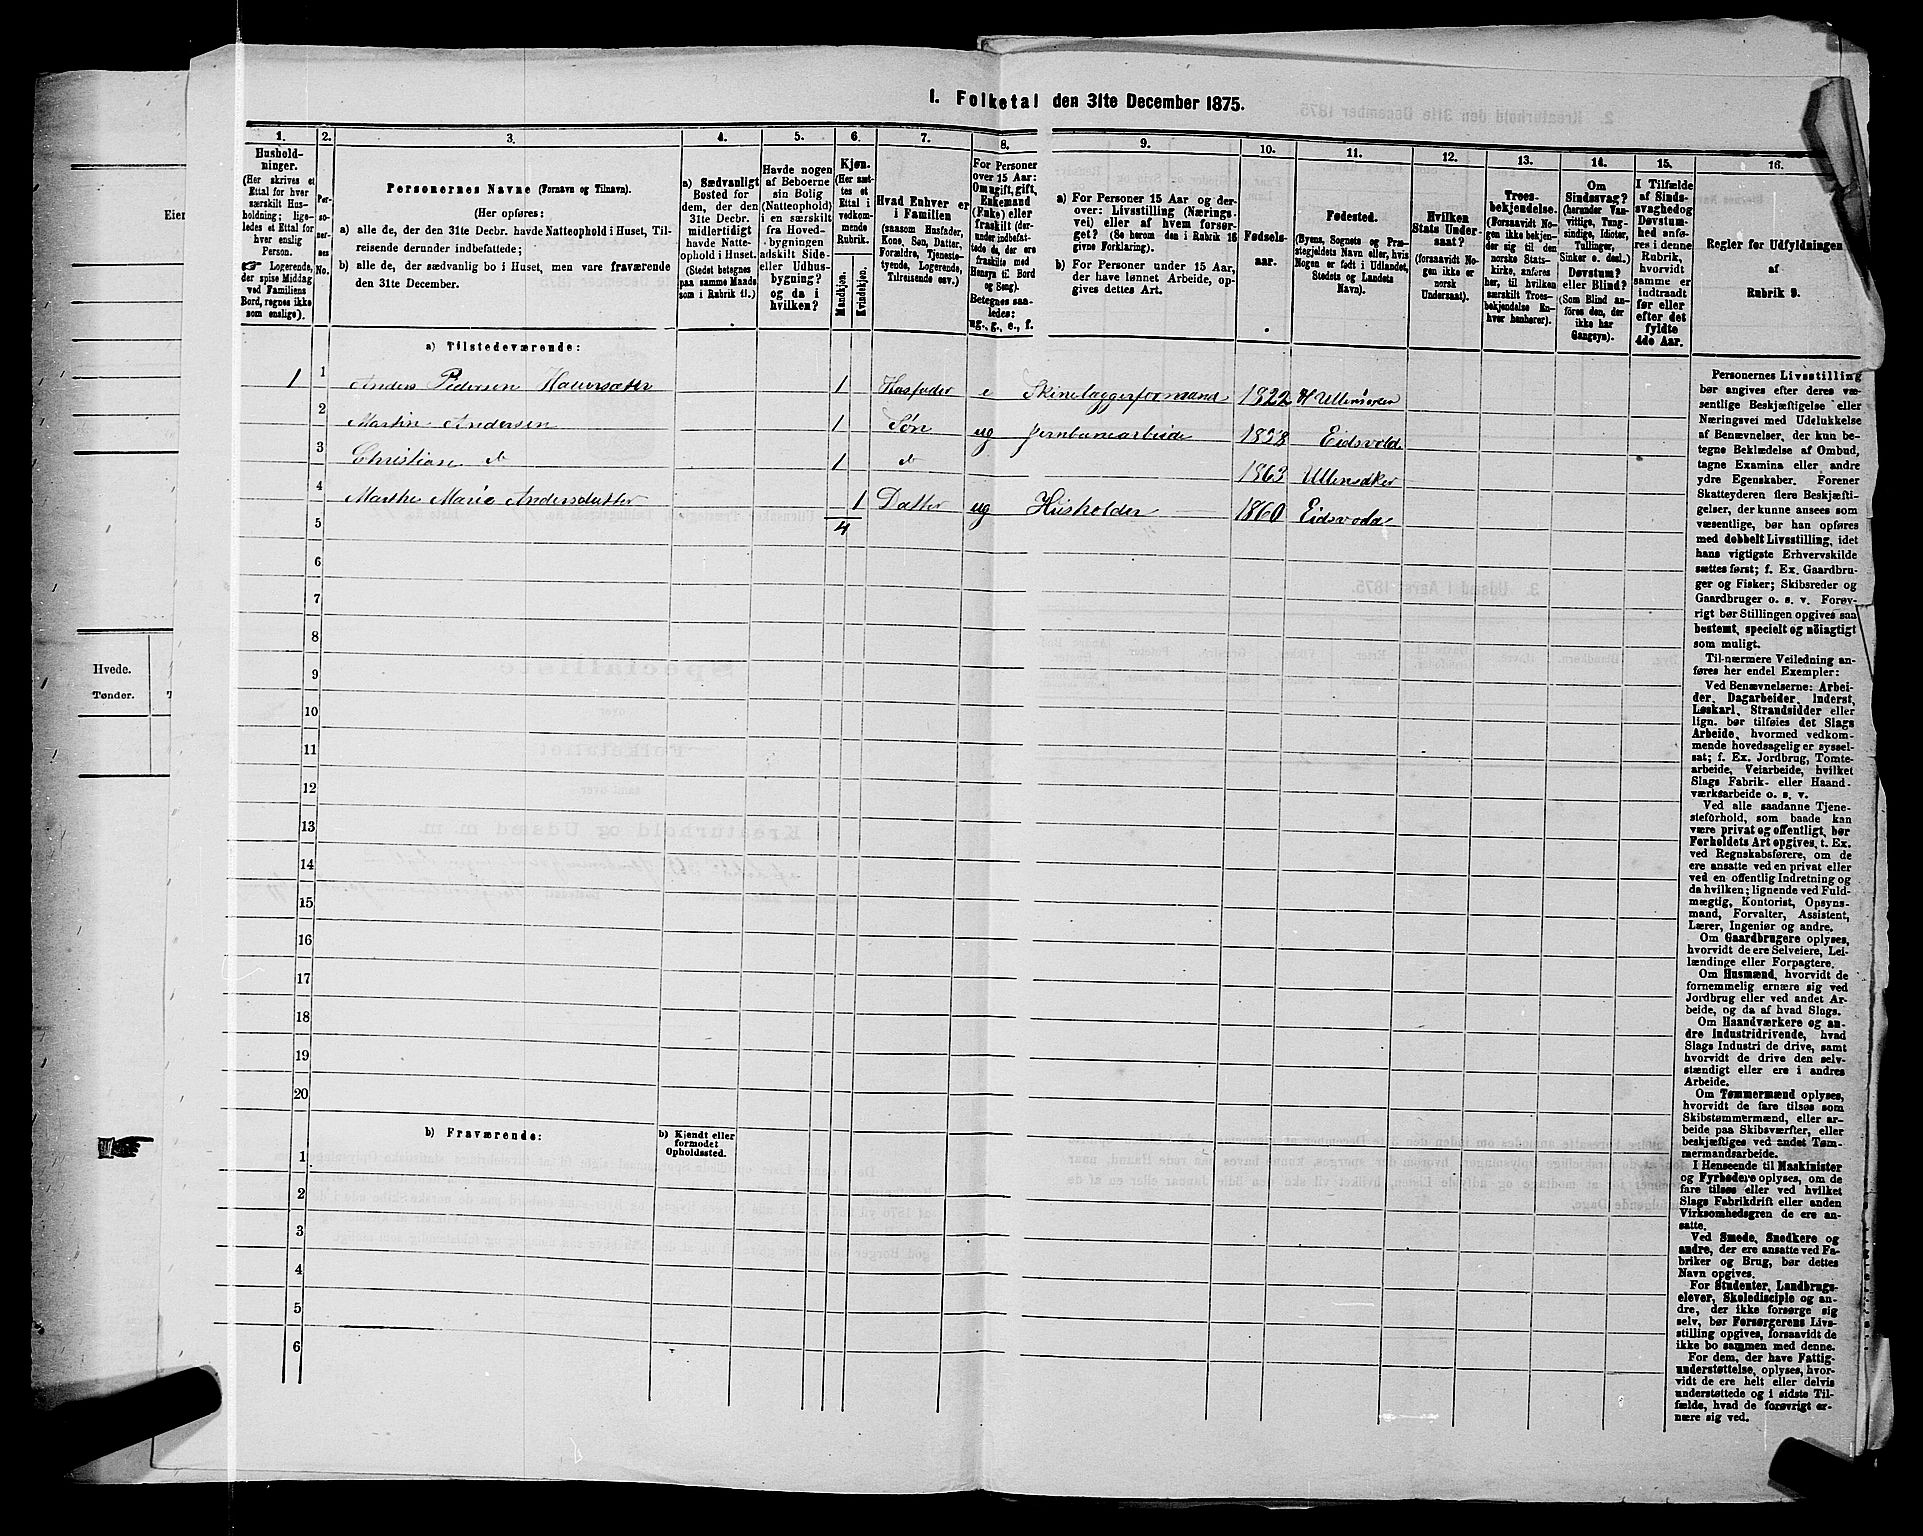 1. Folketal den 31te December 1875.
1.
2.
3.
4.
5.
6.
7.
8.
9.
10.
11.
12.
13.
14.
15.
16.
Hushold-
ninger.
(Her skrives et
Ettal for hver
særskilt Hus-
holdning; lige-
ledes et Ettal for
hver enslig
Person.
☞ Logerende,
der spise Middag
ved Familiens
Bord, regnes ikke
som enslige).
Per-
so-
ner-
nes
No.
Personernes Navne (Fornavn og Tilnavn).
(Her opføres:
a) alle de, der den 31te Decbr. havde Natteophold i Huset, Til-
reisende derunder indbefattede;
b) alle de, der sædvanlig bo i Huset, men vare fraværende
den 31te December.
a) Sædvanligt
Bosted for
dem, der den
31te Decbr.
midlertidigt
havde Natte-
ophold i Huset.
(Stedet betegnes
paa samme Maade
som i Rubrik 11.)
Havde nogen
af Beboerne
sin Bolig
(Natteophold)
i en særskilt
fra Hoved-
bygningen
adskilt Side-
eller Udhus-
bygning?
og da i
hvilken?
Kjøn.
(Her sæt-
tes et
Ettal i
vedkom-
mende
Rubrik.
Mandkjøn.
Kvindekjøn.
Hvad Enhver er
i Familien
(saasom Husfader,
Kone, Søn, Datter,
Forældre, Tjeneste-
tyende, Logerende,
Tilreisende osv.)
For Personer
over 15 Aar:
Om ugift, gift,
Enkemand
(Enke) eller
fraskilt (der-
under indbefat-
tede de, der ere
fraskilte med
Hensyn til Bord
og Seng).
Betegnes saa-
ledes:
ug., g., e., f.
a) For Personer 15 Aar og der-
over: Livsstilling (Nærings-
vei) eller af hvem forsør-
get? (Se herom den i Rubrik 16
givne Forklaring).
b) For Personer under 15 Aar,
der have lønnet Arbeide, op-
gives dettes Art.
Fødsels-
aar.
Fødested.
(Byens, Sognets og Præ-
stegjeldets Navn eller, hvis
Nogen er født i Udlandet,
Stedets og Landets
Navn).
Hvilken
Stats Under-
saat?
(forsaavidt No-
gen ikke er
norsk
Undersaat).
Troes-
bekjendelse.
(Forsaavidt No-
gen ikke bekjen-
der sig til den
norske Stats-
kirke, anføres
her, til hvilken
særskilt Troes-
bekjendelse En-
hver henhører).
Om
Sindssvag?
(herunder Van-
vittige, Tung-
sindige, Idioter,
Tullinger,
Sinker o. desl.)
Døvstum?
eller Blind?
(Som Blind an-
føres den, der
ikke har
Gangsyn).
I Tilfælde
af Sinds-
svaghed og
Døvstum-
hed anfø-
res i denne
Rubrik,
hvorvidt
samme er
indtraadt
før eller
efter det
fyldte
4de Aar.
Regler før Udfyldningen
af
Rubrik 9.
a) Tilstedeværende:
1 1 Anders Pedersen Hauersæter 1 Husfader e Skinelæggerformand 1822 Ullensaker
2 Martin Andersen 1 Søn ug Jernbanearbeide 1858 Eidsvold
3 Christian do 1 do 1863 Ullensaker
4 Marthe Marie Andersdatter 1 Datter ug Husholder 1860 Eidsvold
5 4
6
7
8
9
10
11
12
13
14
15
16
17
18
19
20
b) Fraværende:
b) Kjendt eller
formodet
Opholdssted.
1
2
3
4
5
6
Personernes Livsstilling
bør angives efter deres væ-
sentlige Beskjæftigelse eller
Næringsvei med Udelukkelse
af Benævnelser, der kun be-
tegne Beklædelse af Ombud,
tagne Examina eller andre
ydre Egenskaber. Forener
Skatteyderen flere Beskjæfti-
gelser, der kunne ansees som
væsentlige, bør han opføres
med dobbelt Livsstilling, idet
hans vigtigste Erhvervskilde
sættes først; f. Ex. Gaardbru-
ger og Fisker; Skibsreder og
Gaardbruger o. s. v. Forøv-
rigt bør Stillingen opgives saa
bestemt, specielt og nöiagtigt
som muligt.
Til nærmere Veiledning an-
føres her endel Exempler:
Ved Benævnelserne: Arbei-
der, Dagarbeider, Inderst,
Løskarl, Strandsidder eller
lign. bør tilføies det Slags
Arbeide, hvormed vedkom-
mende hovedsagelig er syssel-
sat; f. Ex. Jordbrug, Tomte-
arbeide, Veiarbeide, hvilket
Slags Fabrik- eller Haand-
værksarbeide o. s. v.
Ved alle saadanne Tjene-
steforhold, som baade kan
være privat og offentligt, bør
Forholdets Art opgives, t. Ex.
ved Regnskabsførere, om de
ere ansatte ved en privat eller
ved en offentlig Indretning og
da hvilken; lignende ved Fuld-
mægtig, Kontorist, Opsyns-
mand, Forvalter, Assistent,
Lærer, Ingeniør og andre.
Om Gaardbrugere oplyses,
hvorvidt de ere Selveiere, Lei-
lændinge eller Forpagtere.
Om Husmænd, hvorvidt de
fornemmelig ernære sig ved
Jordbrug eller ved andet Ar-
beide, og da af hvad Slags.
Om Haandværkere og an-
dre Industridrivende, hvad
Slags Industri de drive, samt
hvorvidt de drive den selv-
stændigt eller ere i andres
Arbeide.
Om Tømmermænd oplyses,
hvorvidt de fare tilsøs som
Skibstømmermænd, eller ar-
beide paa Skibsværfter, eller
beskjæftiges ved andet Tøm-
mermandsarbeide.
I Henseende til Maskinister
og Fyrbødere oplyses, om de
fare tilsøs eller ved hvilket
Slags Fabrikdrift eller anden
Virksomhedsgren de ere an-
satte.
Ved Smede, Snedkere og
andre, der ere ansatte ved Fa-
briker og Brug, bør dettes
Navn opgives.
For Studenter, Landbrugs-
elever, Skoledisciple og an-
dre, der ikke forsørge sig
selv, bør Forsørgerens Livs-
stilling opgives, forsaavidt de
ikke bo sammen med denne.
For dem, der have Fattig-
understøttelse, oplyses, hvor-
vidt de ere helt eller delvis
understøttede og i sidste Til-
fælde, hvad de forøvrigt er-
nære sig ved.
Eier
Hvede.
Tønder.